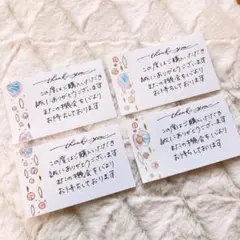 thank you
この度はご購入いただき
誠にありがとうございます
またの機会を心より
お待ちしております
thank you
この度はご購入いただき
誠にありがとうございます
またの機会を心より
お待ちしております
thank you
この度はご購入いただき
誠にありがとうございます
またの機会を心より
お待ちしております
thank you
この度はご購入いただき
誠にありがとうございます
またの機会を心より
お待ちしております